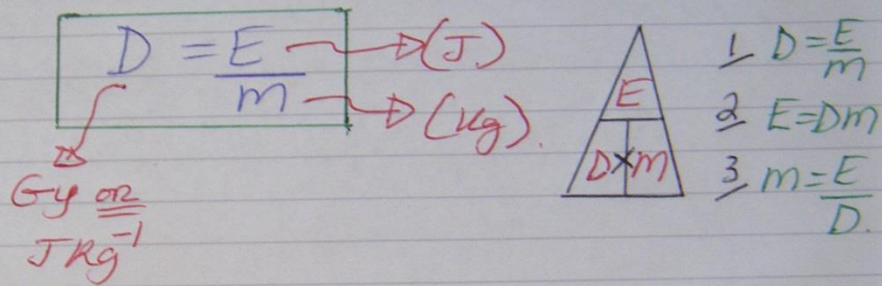 D = E/m
(J)
(Kg).
Gy or
JKg⁻¹
E
D×M
1 D = E/m
2 E = Dm
3 m = E/D.